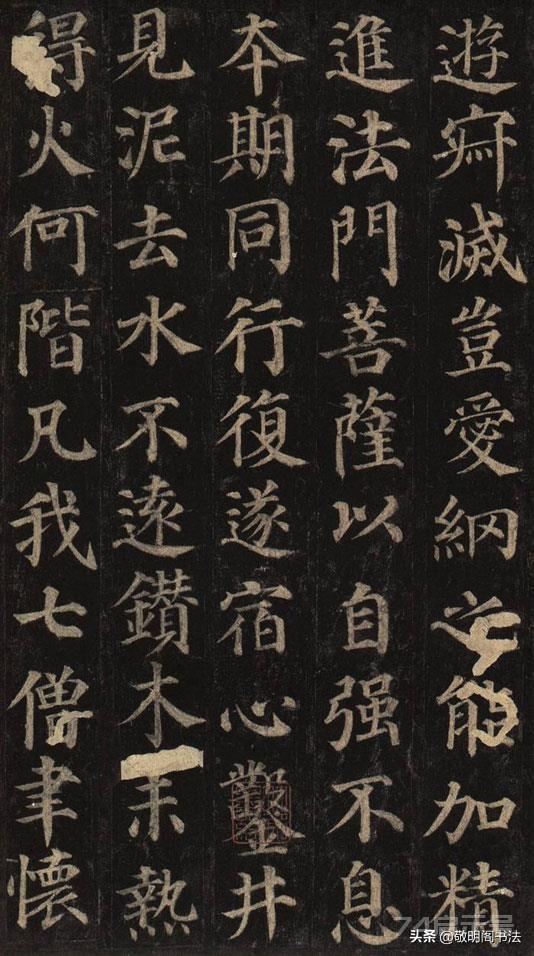 遊寂滅豈愛網之能加精
進法門菩薩以自强不息
夲期同行復遂宿心鑿井
見泥去水不遠鑽木未熱
得火何階凡我七僧聿懷
头条 @敬明阁书法